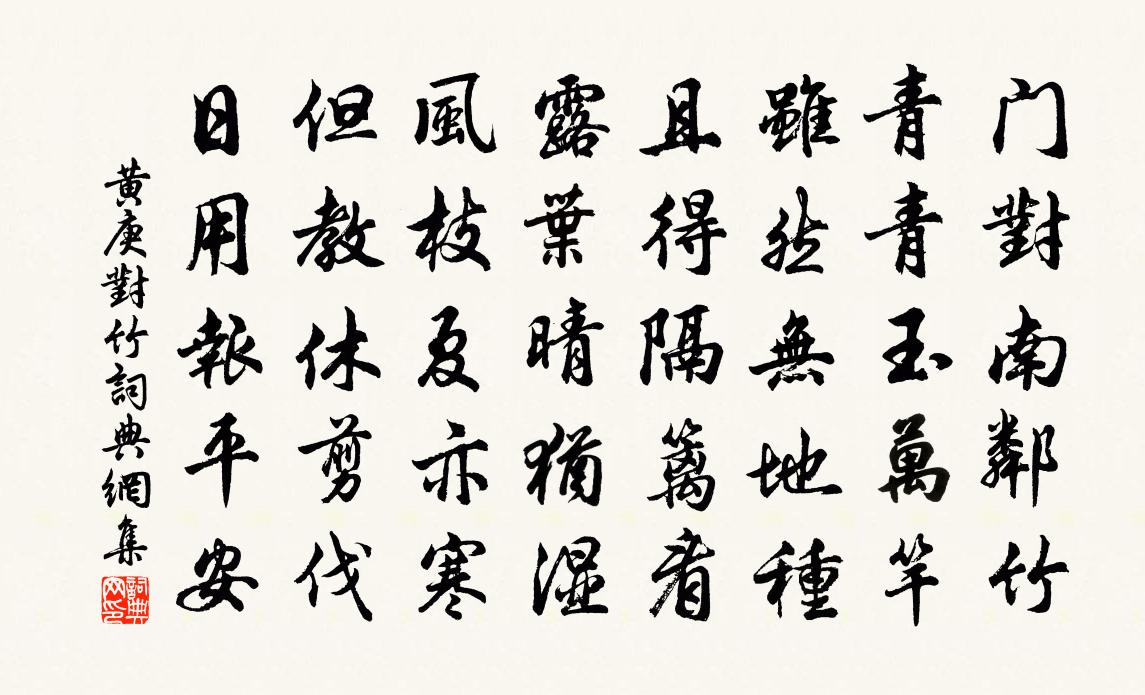 门對南鄰竹
青青玉萬竿
雖然無地種
且得隔籬看
露葉晴猶濕
風枝夏亦寒
但教休剪伐
日用報平安
黄庚對竹詞典網集
詞典网印